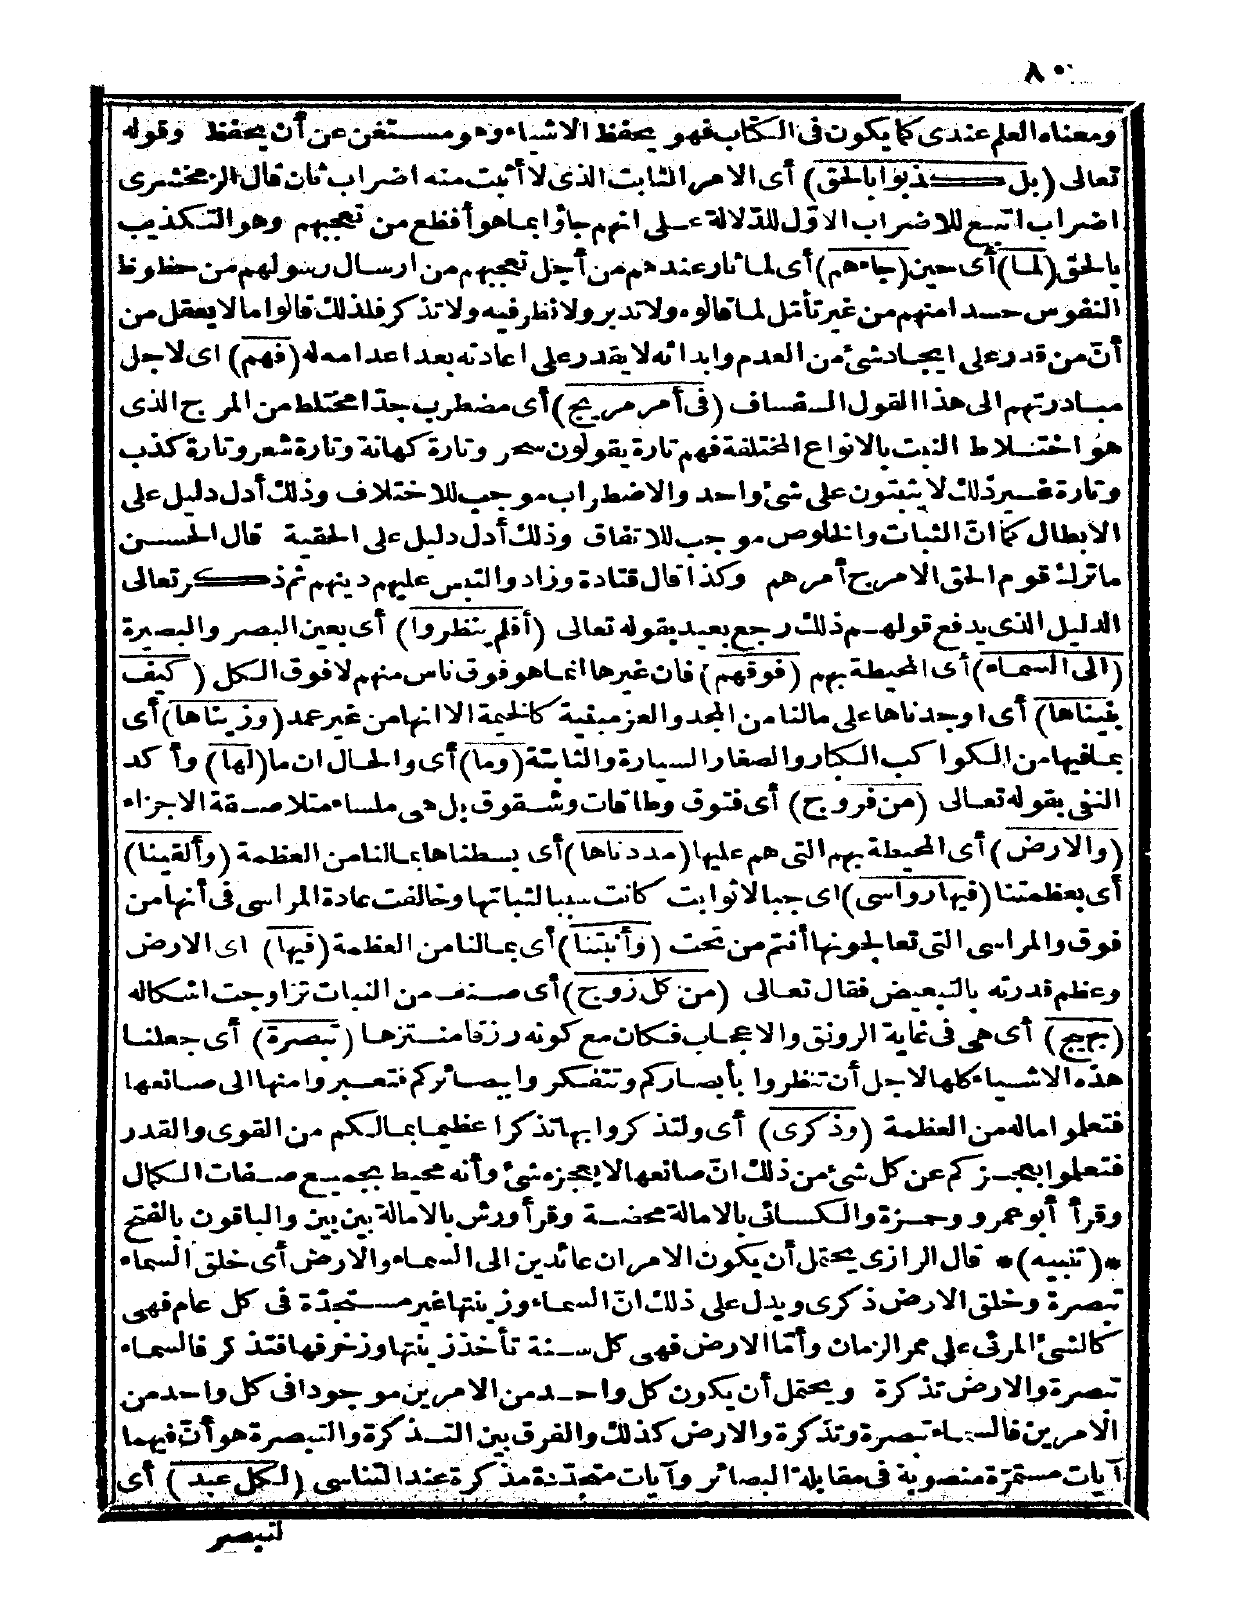 ٨٠
ومعناه العلم عندى كما يكون فى الكتاب فهو يحفظ الاشياء وهو مستغن عن أن يحفظ وقوله
تعالى (بل كذبوا بالحق) أى الامر الثابت الذى لا أثبت منه اضراب ثان قال الزمخشرى
اضراب اتبع للاضراب الاوّل للدّلالة على انهم جاؤا بما هو أفظع من تعجبهم وهو التكذيب
بالحق (لما) أى حين (جاءهم) أى لما ثار عندهم من أجل تعجبهم من ارسال رسولهم من حظوظ
النفوس حسدا منهم من غير تأمّل لما قالوه ولا تدبر ولا نظر فيه ولا تذكر فلذلك قالوا ما لا يعقل من
أنّ من قدر على ايجاد شئ من العدم وابدائه لا يقدر على اعادته بعد اعدامه له (فهم) اى لاجل
مبادرتهم الى هذا القول السفساف (فى أمر مريج) أى مضطرب جدّا مختلط من المرج الذى
هو اختلاط النبت بالانواع المختلفة فهم تارة يقولون سحر وتارة كهانة وتارة شعر وتارة كذب
وتارة غير ذلك لا يثبتون على شئ واحد والاضطراب موجب للاختلاف وذلك أدل دليل على
الابطال كما انّ الثبات والخلوص موجب للاتفاق وذلك أدل دليل على الحقية قال الحسن
ما ترك قوم الحق الا مرج أمرهم وكذا قال قتادة وزاد والتبس عليهم دينهم ثم ذكر تعالى
الدليل الذى يدفع قولهم ذلك رجع بعيد بقوله تعالى (أفلم ينظروا) أى بعين البصر والبصيرة
(الى السماء) أى المحيطة بهم (فوقهم) فان غيرها انما هو فوق ناس منهم لا فوق الكل (كيف
بنيناها) أى اوجدناها على مالنا من المجد والعز مبنية كالخيمة الا انها من غير عمد (وزيناها) أى
بما فيها من الكواكب الكبار والصغار السيارة والثابتة (وما) أى والحال ان ما (لها) وأكد
النفى بقوله تعالى (من فروج) أى فتوق وطاقات وشقوق بل هى ملساء متلاصقة الاجزاء
(والارض) أى المحيطة بهم التى هم عليها (مددناها) أى بسطناها بمالنا من العظمة (وألقينا)
أى بعظمتنا (فيها رواسى) اى جبالا ثوابت كانت سببا لثباتها وخالفت عادة المراسى فى أنها من
فوق والمراسى التى تعالجونها أنتم من تحت (وأنبتنا) أى بمالنا من العظمة (فيها) اى الارض
وعظم قدرته بالتبعيض فقال تعالى (من كل زوج) أى صنف من النبات تزاوجت اشكاله
(بهيج) أى هى فى غاية الرونق والاعجاب فكان مع كونه رزقا منتزها (تبصرة) أى جعلنا
هذه الاشياء كلها لاجل أن تنظروا بأبصاركم وتتفكروا ببصائركم فتعبروا منها الى صانعها
فتعلموا ماله من العظمة (وذكرى) أى ولتذكروا بها تذكرا عظيما بمالكم من القوى والقدر
فتعلموا بعجزكم عن كل شئ من ذلك انّ صانعها لا يعجزه شئ وأنه محيط بجميع صفات الكمال
وقرأ أبو عمرو وحمزة والكسائى بالامالة محضة وقرأ ورش بالامالة بين بين والباقون بالفتح
*(تنبيه)* قال الرازى يحتمل أن يكون الامران عائدين الى السماء والارض أى خلق السماء
تبصرة وخلق الارض ذكرى ويدل على ذلك انّ السماء وزينتها غير مستجدّة فى كل عام فهى
كالشئ المرئى على ممر الزمان وأمّا الارض فهى كل سنة تأخذ زينتها وزخرفها فتذكر فالسماء
تبصرة والارض تذكرة ويحتمل أن يكون كل واحد من الامرين موجودا فى كل واحد من
الامرين فالسماء تبصرة وتذكرة والارض كذلك والفرق بين التذكرة والتبصرة هو أنّ فيهما
آيات مستمرّة منصوبة فى مقابلة البصائر وآيات متجدّدة مذكرة عند التناسى (لكل عبد) أى
لتبصر